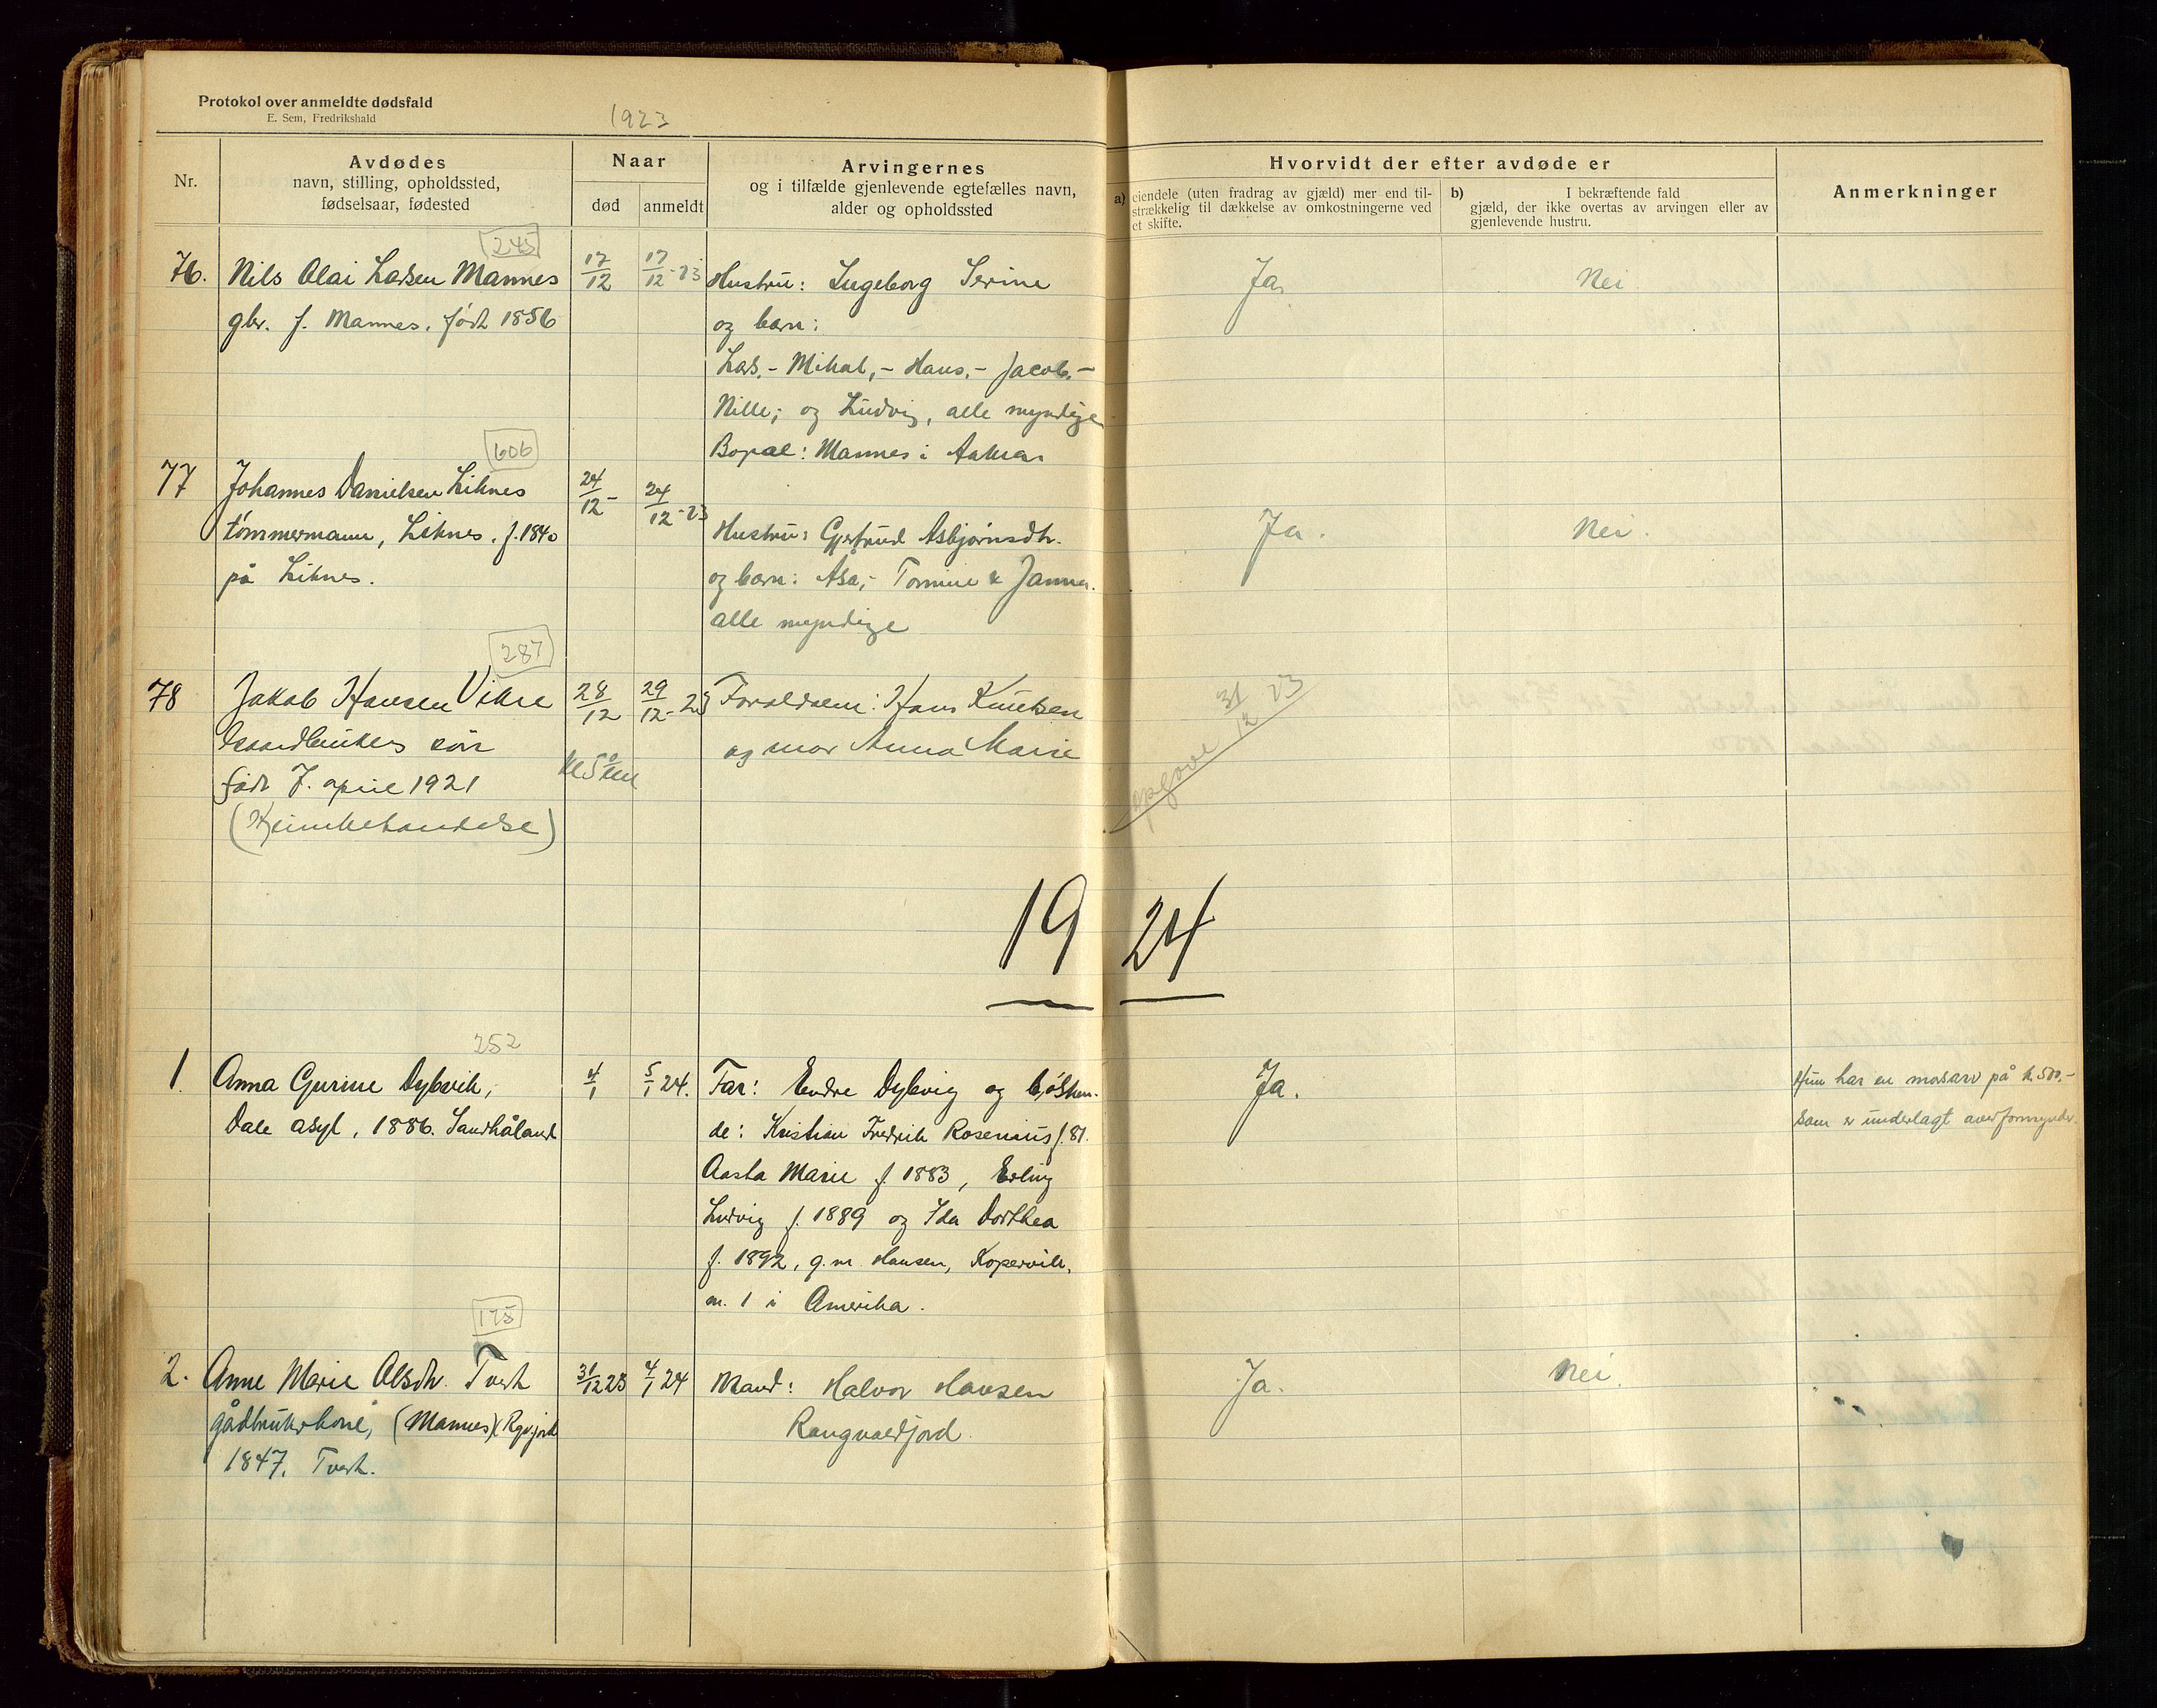 Protokol over anmeldte dødsfald
E. Sem, Fredrikshald
1923
Nr.
Avdødes
navn, stilling, opholdssted,
fødselsaar, fødested
Naar
død
anmeldt
Arvingernes
og i tilfælde gjenlevende egtefælles navn,
alder og opholdssted
Hvorvidt der efter avdøde er
a) eiendele (uten fradrag av gjæld) mer end til-
strækkelig til dækkelse av omkostningerne ved
et skifte.
b) I bekræftende fald
gjæld, der ikke overtas av arvingen eller av
gjenlevende hustru.
Anmerkninger
245
76. Nils Olai Larsen Mannes
gbr. f. Mannes. født 1856
17/12
17/12-23
Hustru: Ingeborg Serine
og barn:
Lars,- Mikal,- Hans,- Jacob,-
Nille; og Ludvig, alle myndige
Bopæl: Mannes i Aakra
Ja
Nei.
606
77 Johannes Danielsen Liknes
tømmermann, Liknes. f. 1840
på Liknes.
24/12-
24/12-23
Hustru: Gjertrud Asbjørnsdtr.
og barn: Åsa,- Tomine & Janna.
alle myndige
Ja.
Nei.
287
78 Jakob Hansen Vikre
Gaardbrukers søn
født 7. april 1921
28/12
29/12-23
Forældrene: Hans Knutsen
og mor Anna Marie
opgave 31/12 23
1924
252
1. Anna Gurine Dybvik,
Dale asyl, 1886. Sandhåland
4/1
5/1 24.
Far: Endre Dybvig og søsken-
de: Kristian Fredrik Rosenius f. 81.
Aasta Marie f. 1883, Erling
Ludvig f. 1889 og Ida Dorthea
f. 1892, g.m. Hansen, Kopervik,
n. 1 i Amerika.
Ja.
Hun har en morsarv på k. 500,-
som er underlagt overformynder.
175
2. Anne Marie Olsdtr. Tveit
gårdbrukerkone, (Mannes)
1847. Tveit.
31/12 23
4/1 24
Mand: Halvor Hansen
Rangvaldjord.
Ja.
Nei.